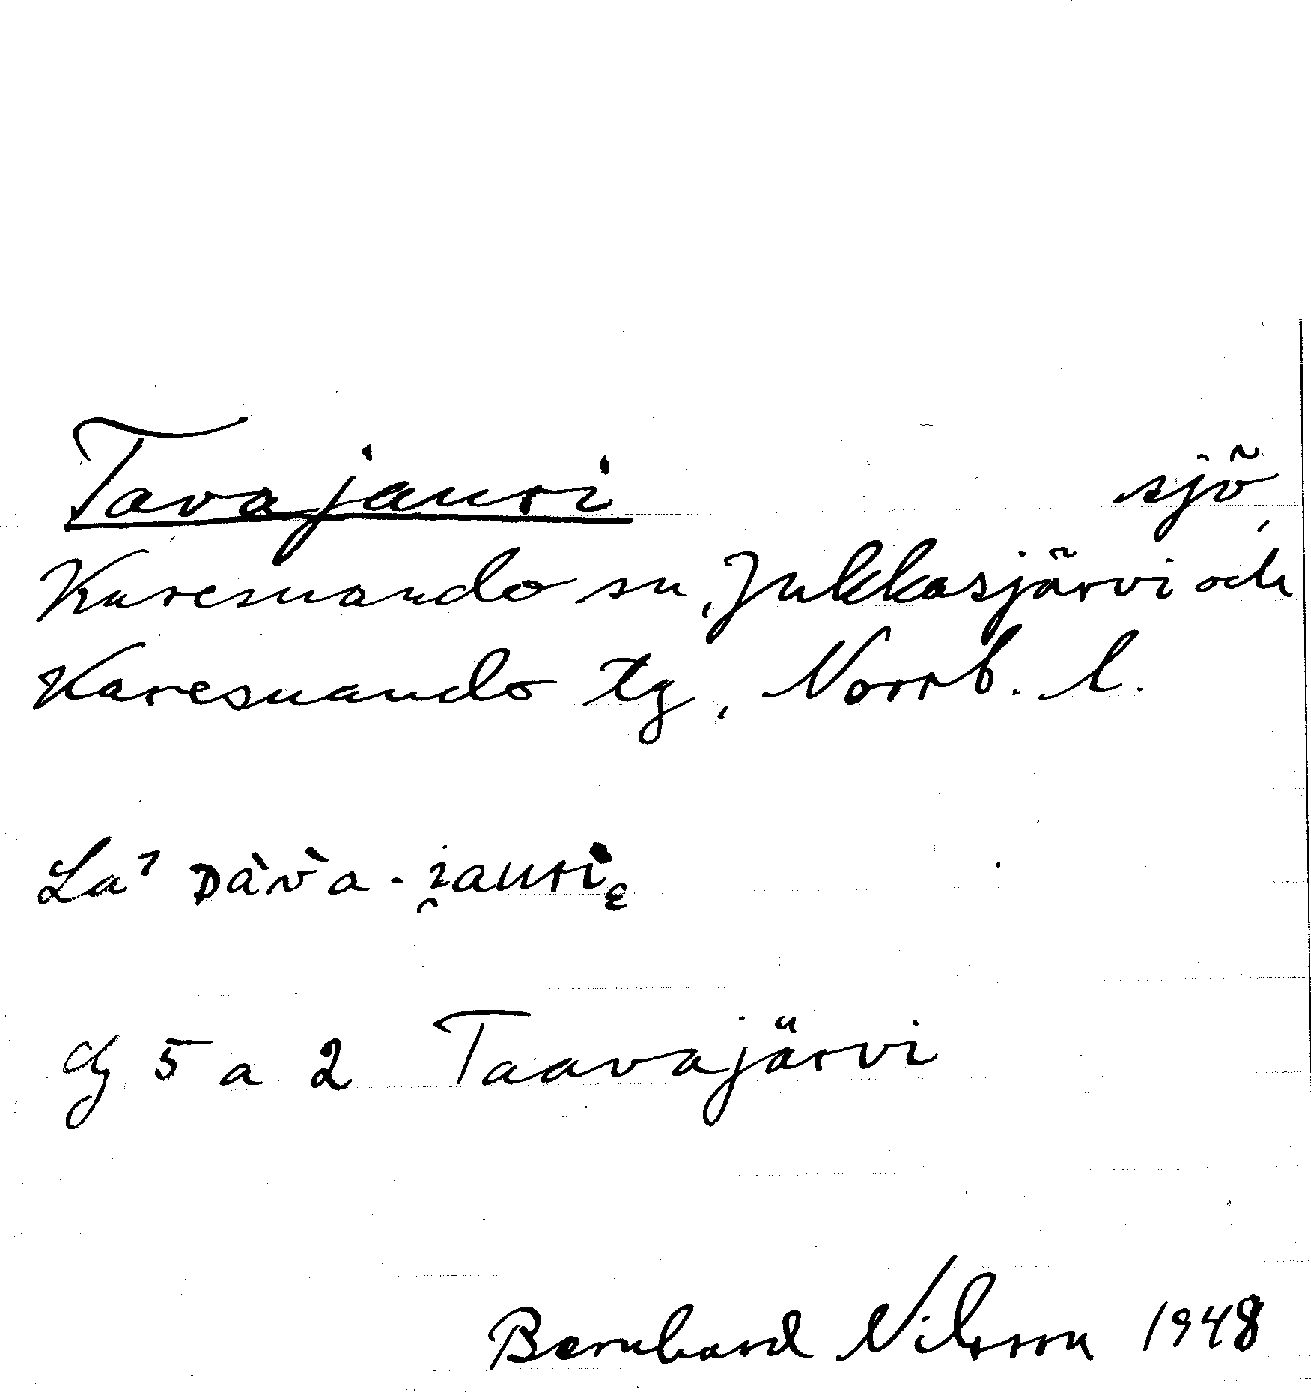 Tavajauri sjö,
Karesuando sn, Jukkasjärvi och
Karesuando tg, Norrb. l.
dg 5 a 2 Taavajärvi
Bernhard Nilsson 1948